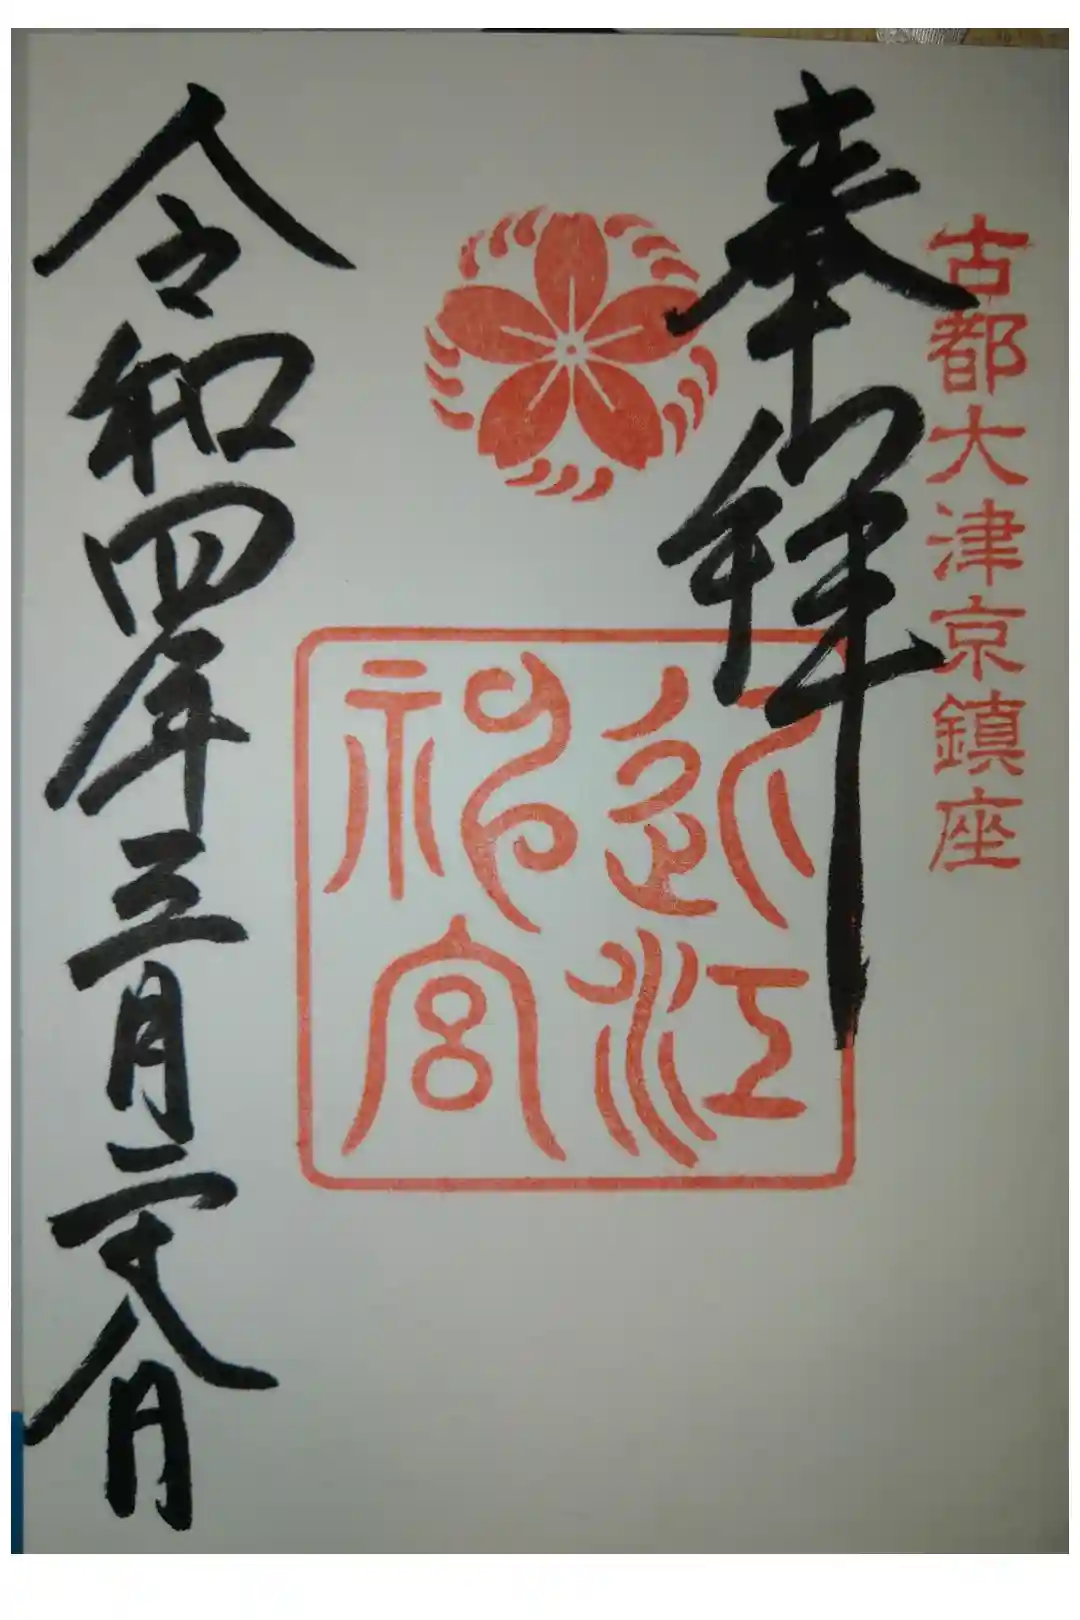 古都大津京鎮座
奉拝
近江
神宮
令和四年三月二十八日